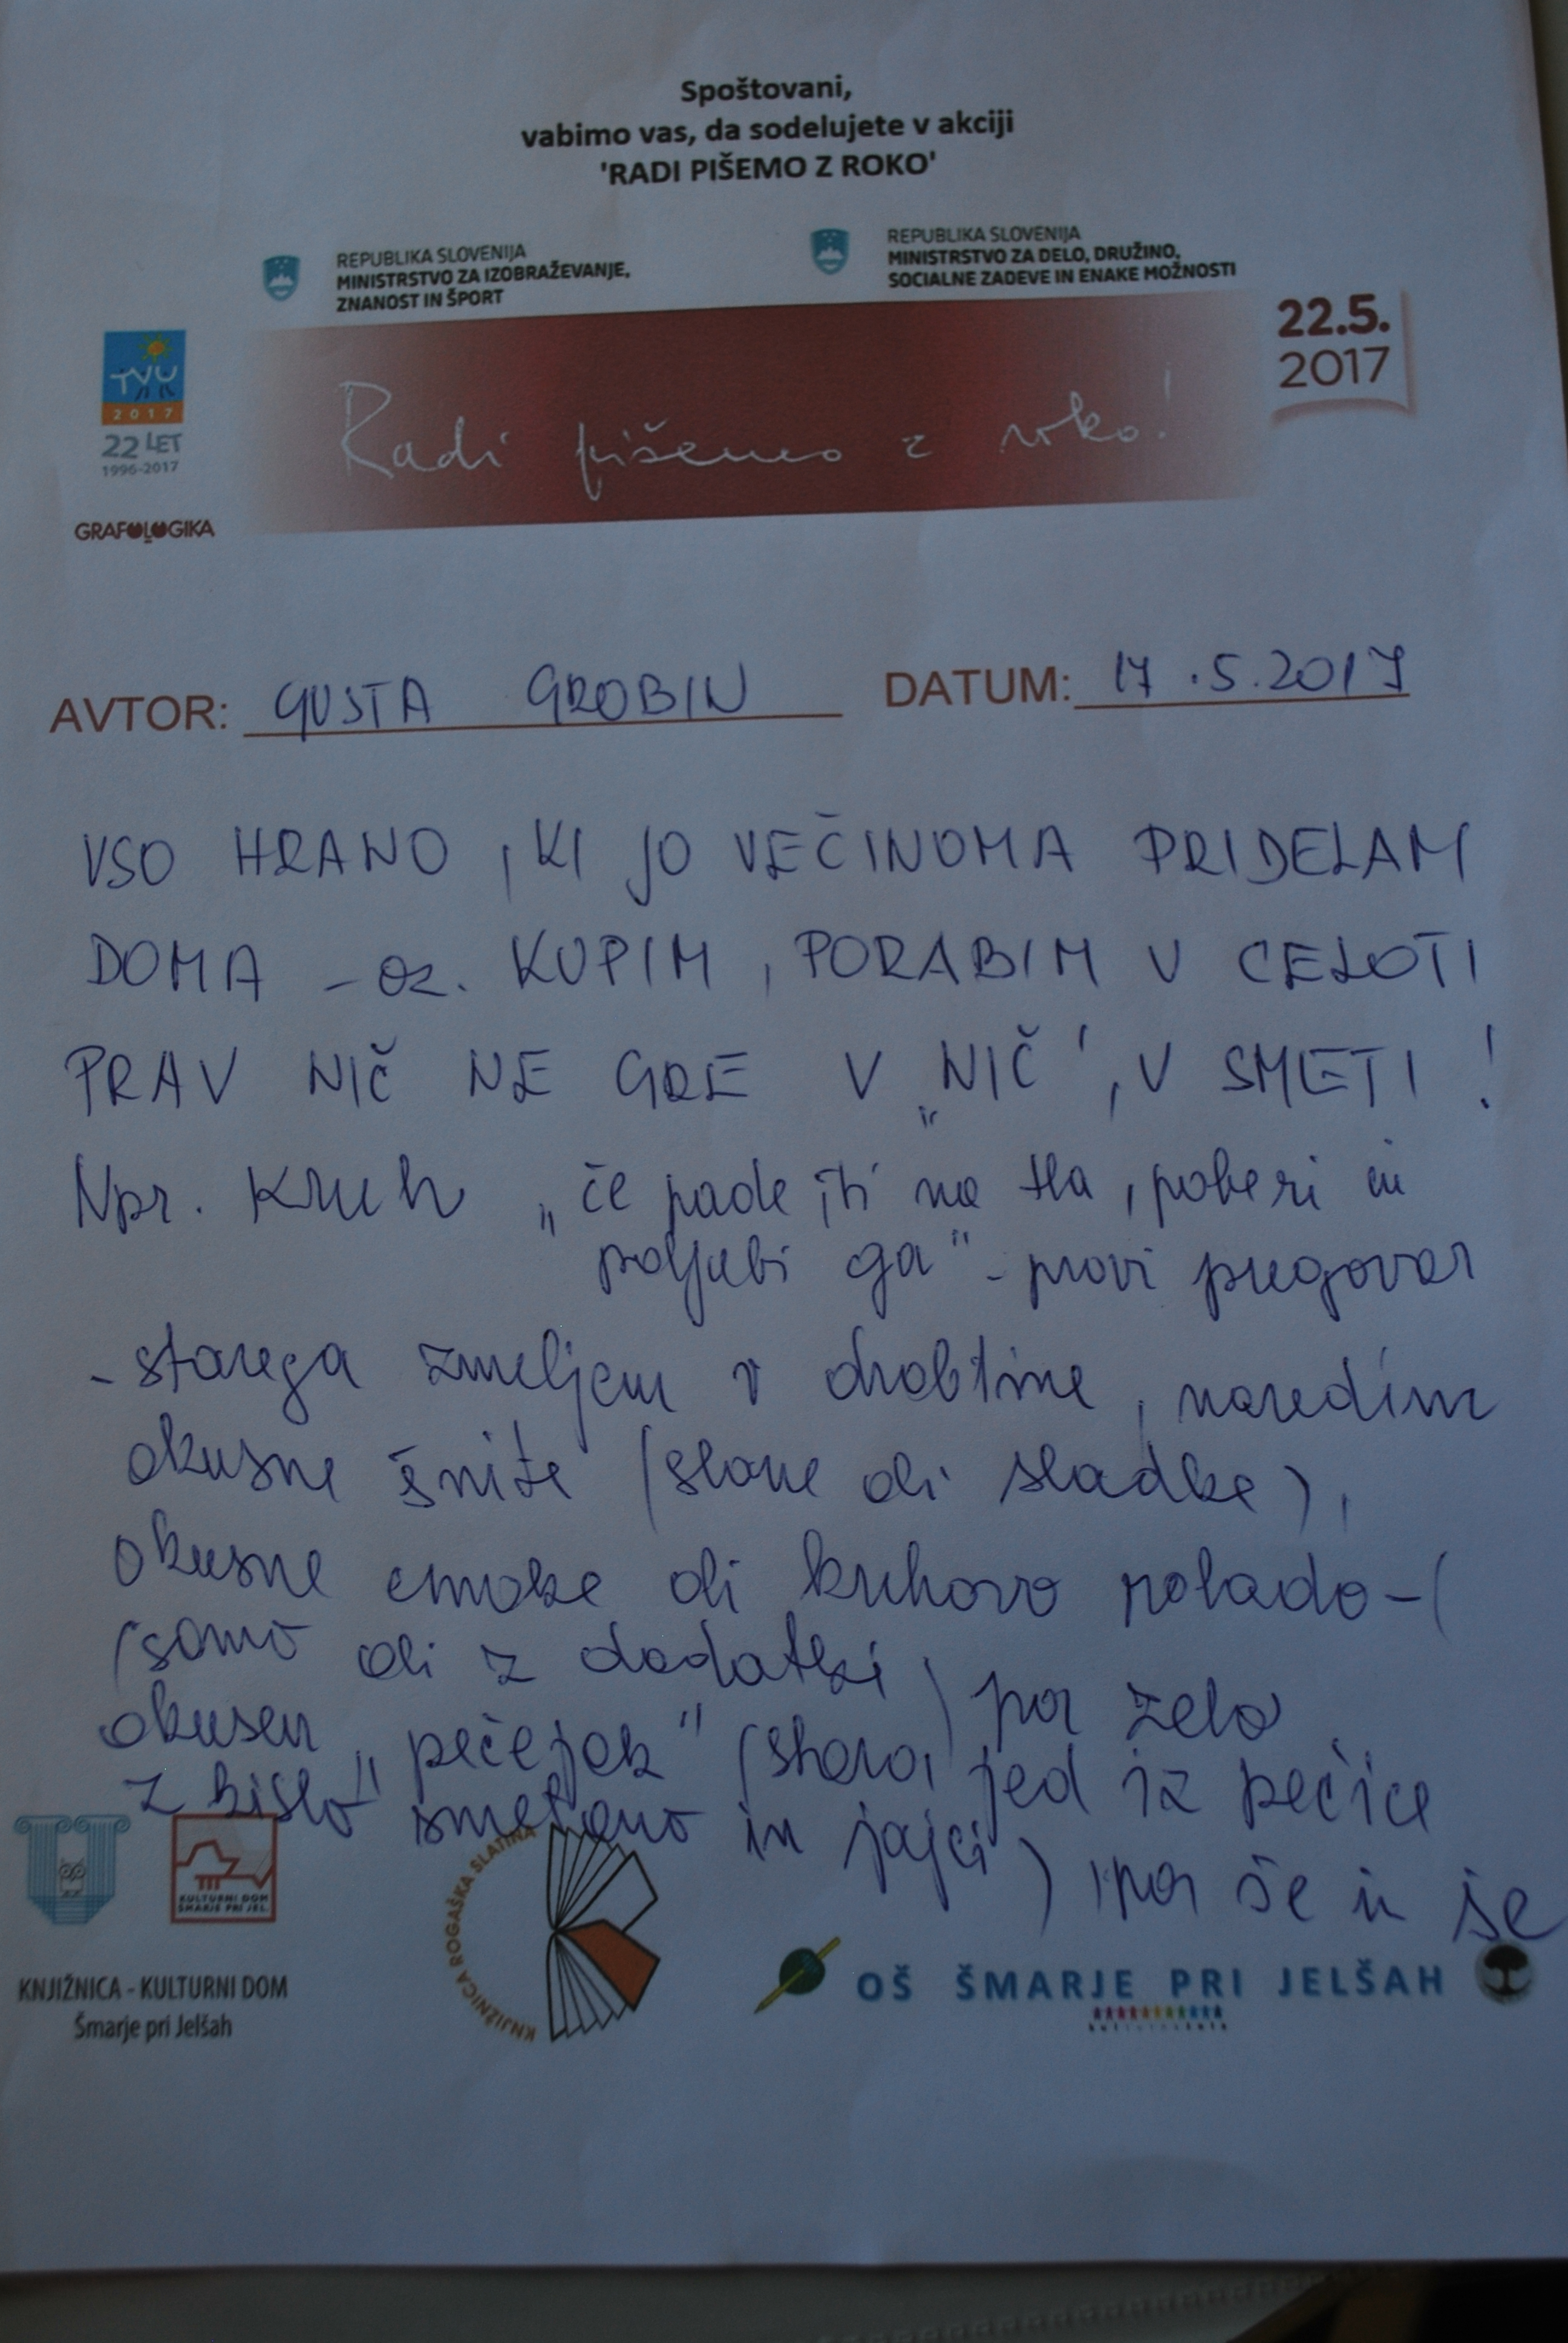 Spoštovani,
vabimo vas, da sodelujete v akciji
'RADI PIŠEMO Z ROKO'
REPUBLIKA SLOVENIJA
MINISTRSTVO ZA IZOBRAŽEVANJE,
ZNANOST IN ŠPORT
REPUBLIKA SLOVENIJA
MINISTRSTVO ZA DELO, DRUŽINO,
SOCIALNE ZADEVE IN ENAKE MOŽNOSTI
TVU
2017
22 LET
1996-2017
GRAFOLOGIKA
Radi pišemo z roko!
22.5.
2017
AVTOR: GUSTA GROBIN DATUM: 17.5.2017
VSO HRANO, KI JO VEČINOMA PRIDELAM
DOMA - oz. KUPIM, PORABIM V CELOTI
PRAV NIČ NE GRE V „NIČ", V SMETI!
Npr. Kruh „če pade ti na tla, poberi in
poljubi ga" - pravi pregovor
- starega zmeljem v drobtine, naredim
okusne šnite (slane ali sladke),
okusne cmoke ali kruhovo rolado - (
(samo ali z dodatki) pa zelo
okusen „pečejak" (stara jed iz pečice
z kislo smetano in jajci), pa še in še
KULTURNI DOM
ŠMARJE PRI JEL.
KNJIŽNICA - KULTURNI DOM
Šmarje pri Jelšah
KNJIŽNICA ROGAŠKA SLATINA
OŠ ŠMARJE PRI JELŠAH